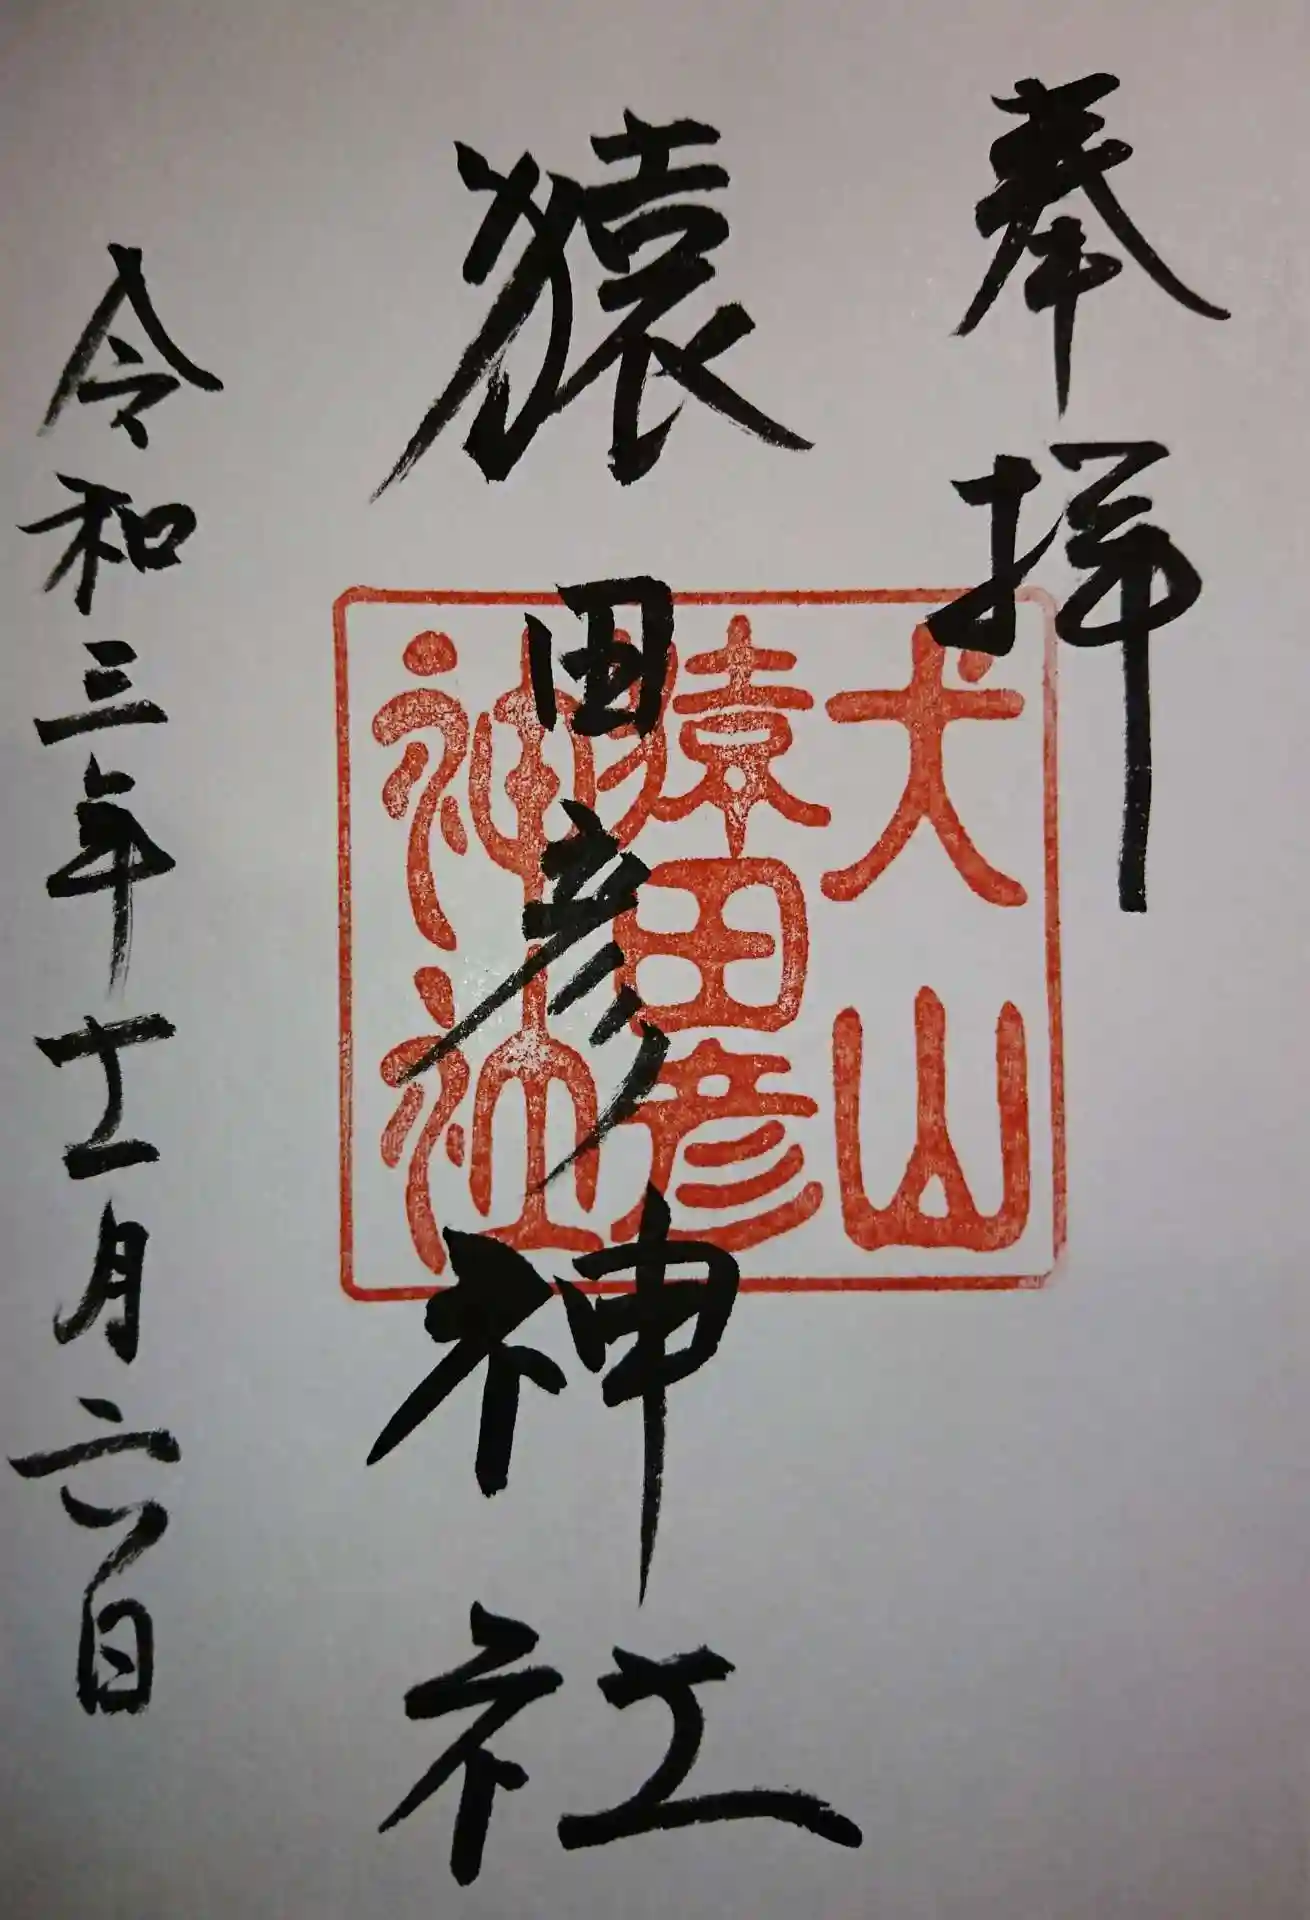 奉拝
猿田彦神社
令和三年十一月六日
犬山
猿田彦
神社